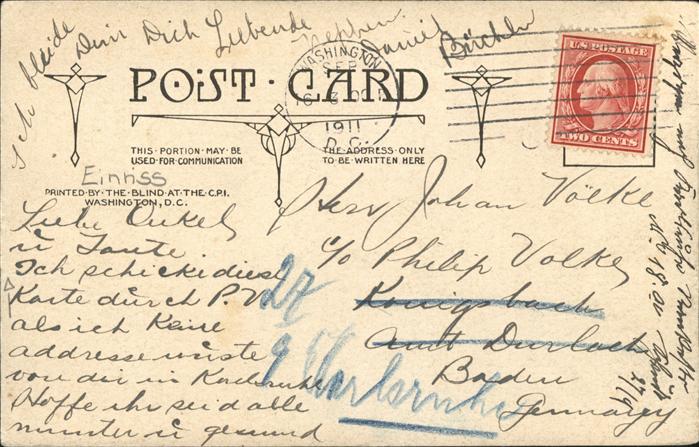 Ich bleibe Dein Dich Liebende Nephew
Daniel
WASHINGTON
SEP
16
1911
D.C.
U.S. POSTAGE
TWO CENTS
POST CARD
THIS PORTION MAY BE
USED FOR COMMUNICATION
THE ADDRESS ONLY
TO BE WRITTEN HERE
Einriss
PRINTED BY THE BLIND AT THE C.P.I.
WASHINGTON, D.C.
Liebe Onkel
u Tante.
Ich schicke diese
Karte durch P. V.
als ich Keine
addresse wuste
von dir in Karlsruhe
Hoffe ihr seid alle
munter u gesund
Herr Johan Völke
c/o Philip Volke
Königsbach
Amt Durlach
Baden
Germany
27
Karlsruhe
27/9